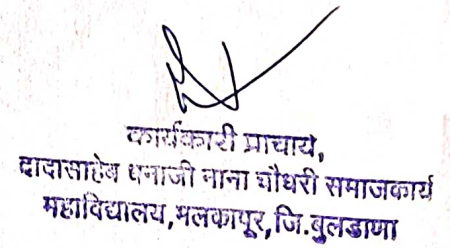 कार्यकारी प्राचार्य,
दादासाहेब धनाजी नाना चौधरी समाजकार्य
महाविद्यालय,मलकापूर,जि.बुलडाणा